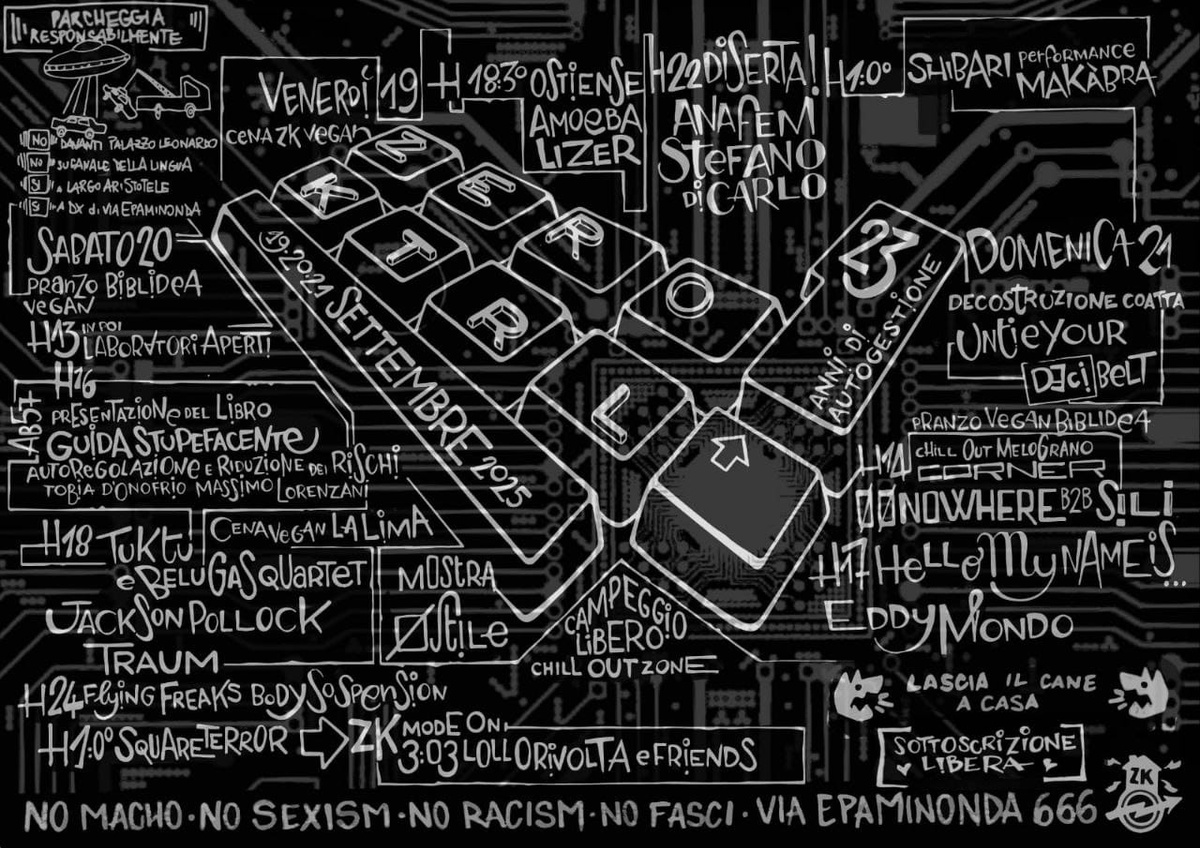 PARCHEGGIA
RESPONSABILMENTE
NO DAVANTI PALAZZO LEONARDO
NO SU CANALE DELLA LINGUA
SI A LARGO ARISTOTELE
SI A DX di VIA EPAMINONDA
VENERDÌ 19
CENA ZK VEGAN
H 18:30 OSTIENSE
AMOEBA
LIZER
H22 DISERTA!
ANAFEM
STEFANO
Di CARLO
H1:00 SHIBARI PERFORMANCE
MAKÀBRA
Z E R O
K T R L
19·20·21 SETTEMBRE 2025
23
ANNI DI
AUTOGESTIONE
SABATO 20
PRANZO BIBLIDEA
VEGAN
H13 IN POI
LABORATORI APERTI
H16
LAB57
PRESENTAZIONE DEL LIBRO
GUIDA STUPEFACENTE
AUTOREGOLAZIONE E RIDUZIONE DEI RISCHI
TOBIA D'ONOFRIO MASSIMO LORENZANI
CENA VEGAN LA LIMA
H18 TUKTU
e BELUGAS QUARTET
JACKSON POLLOCK
TRAUM
MOSTRA
ØSTILE
H24 FLYING FREAKS BODY SOSPENSION
H1:00 SQUARE TERROR
ZK MODE ON:
3:03 LOLLO RIVOLTA e FRIENDS
CAMPEGGIO
LIBERO!
CHILL OUT ZONE
DOMENICA 21
DECOSTRUZIONE COATTA
UNTIE YOUR
DECIBELT
PRANZO VEGAN BIBLIDEA
H14 CHILL OUT MELOGRANO
CORNER
00NOWHERE B2B SILI
H17 HELLO MY NAME iS...
EDDY MONDO
LASCIA IL CANE
A CASA
SOTTOSCRIZIONE
LIBERA
ZK
NO MACHO · NO SEXISM · NO RACISM · NO FASCI · VIA EPAMINONDA 666